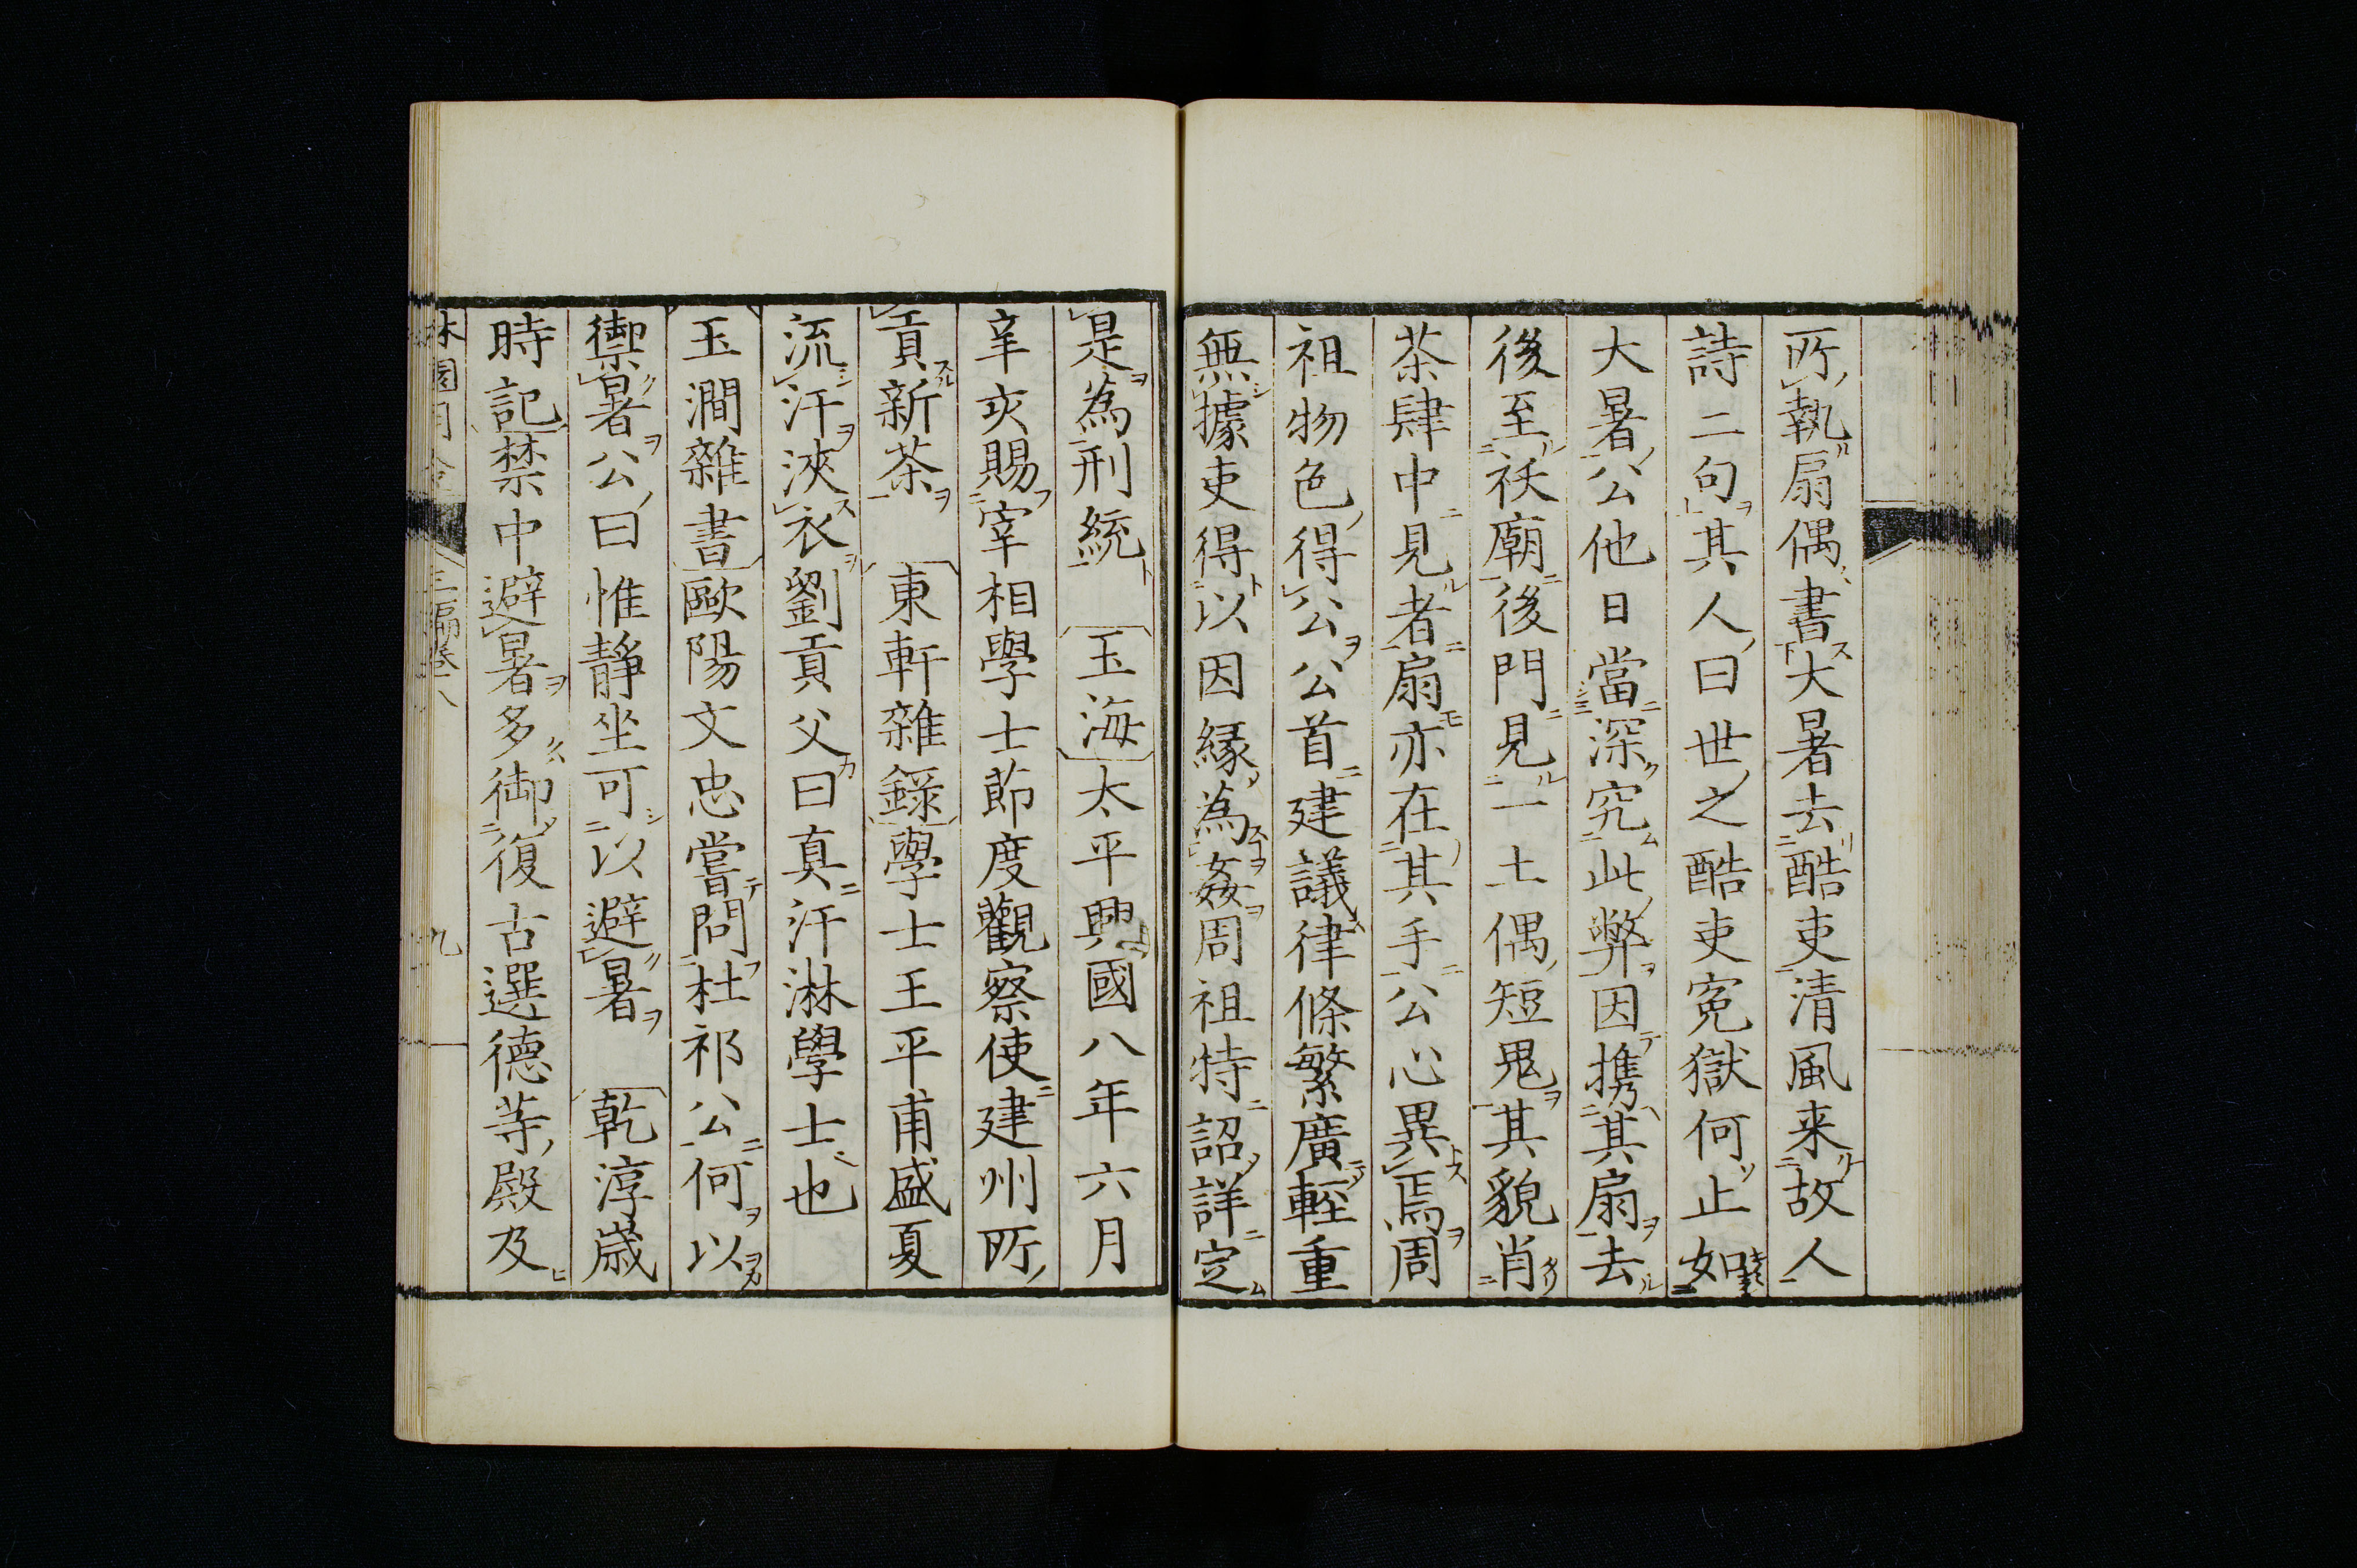 所執扇偶書大暑去酷吏清風来故人
詩二句其人曰世之酷吏寃獄何止如
大暑公他日當深究此弊因携其扇去
後至祅廟後門見一土偶短鬼其貌肖
茶肆中見者扇亦在其手公心異焉周
祖物色得公公首建議律條繁廣輕重
無據吏得以因縁為姦周祖特詔詳定
是為刑統 玉海 太平興國八年六月
辛亥賜宰相學士節度觀察使建州所
貢新茶 東軒雜錄 學士王平甫盛夏
流汗浹衣劉貢父曰真汗淋學士也
玉澗雜書 歐陽文忠嘗問杜祁公何以
禦暑公曰惟靜坐可以避暑 乾淳歳
時記 禁中避暑多御復古選德等殿及
林園月令 三編巻八 九